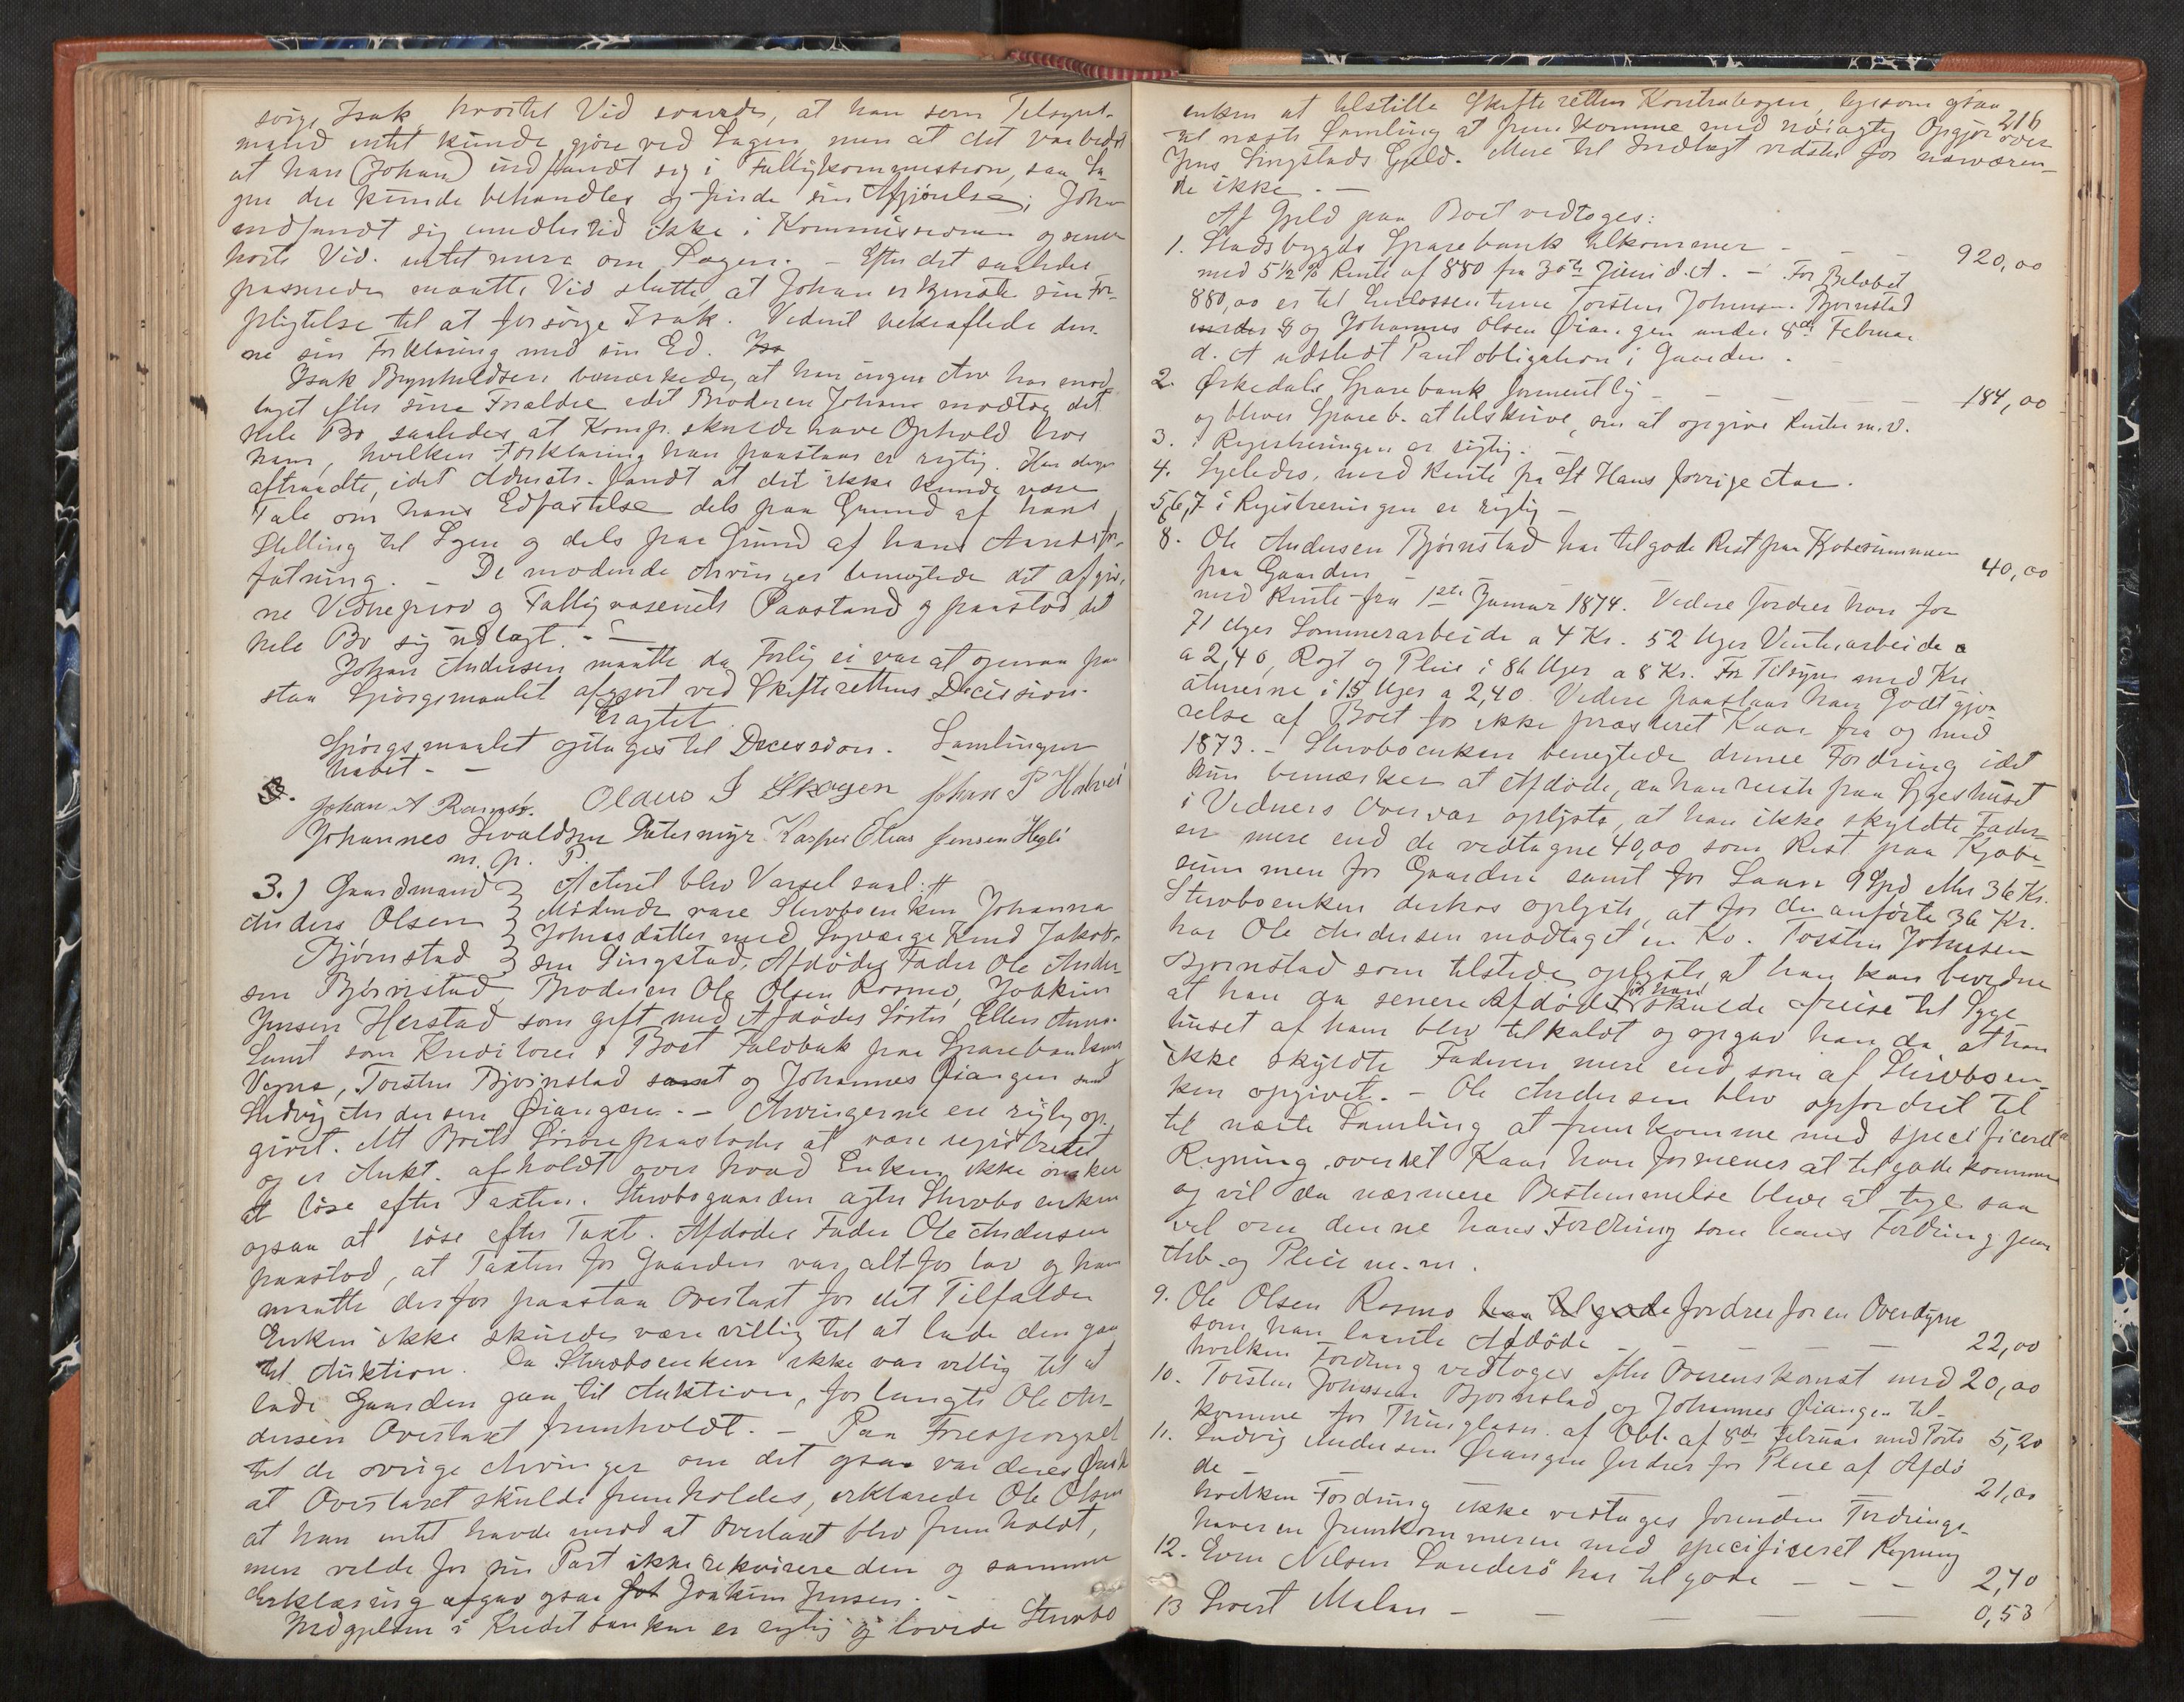 sørge Isak, hvortil Vid svarede, at han som Tilsyns-
mand intet kunde gjøre ved Sagen, men at det var bedst
at han (Johan) indfandt sig i Fattigkommission, saa Sa-
gen der kunde behandles og finde sin Afgjørelse; Johan
indfandt sig imidlertid ikke i Kommissionen og senere
hørte Vid. intet mere om Sagen. - Efter det saaledes
passerede maatte Vid slutte, at Johan erkjendte sin For-
pligtelse til at forsørge Isak. Vidnet bekræftede den-
ne sin Forklaring med sin Ed.
Isak Brynhildsen bemærkede, at han ingen Arv har mod-
taget efter sine Forældre idet Broderen Johan modtog det
hele Bo saaledes at Komp. skulde have Ophold hos
ham, hvilken Forklaring han paastaar er rigtig. Han derpaa
aftraadte, idet Administr. fandt at det ikke kunde være
Tale om hans Edfæstelse dels paa Grund af hans
Stilling til Sagen og dels paa Grund af hans Aandsfor-
fatning. - De mødende Arvinger benegtede det afgiv-
ne Vidneprov og Fattigvæsenets Paastand og paastod det
hele Bo sig udlagt. -
Johan Andersen maatte da Forlig ei var at opnaa paa
staa Spørgsmaalet afgjort ved Skifterettens Decission.
Eragtet.
Spørgsmaalet optages til Decession. Samlingen
hævet. -
Johan A Ramsb. Olaus J Skogen Johan P Halvei
Johannes Sivaldsen Kasper Elias Jensen Hegli
m. p. P.
3.) Gaardmand Acteret blev Varsel saal: #
Anders Olsen Mødende vare Stervboenken Johanna
Bjørnstad Johnsdatter med Lagværge Knud Jakob-
sen Singstad, Afdødes Fader Ole Ander
sen Bjørnstad, Broderen Ole Olsen Rosmo, Joakim
Jensen Herstad som gift med Afdødes Søster Ellen Anna.
Samt som Kreditorer i Boet Faldbak paa Sparebankens
Vegne, Torsten Bjørnstad samt og Johannes Øiangen samt
Ludvig Andersen Øiangen. - Arvingerne ere rigtig op-
givet. Alt Boets Løsøre paastodes at være registreret
og er Aukt. afholdt over hvad Enken ikke ønsker
at løse efter Taxten. Stervbogaarden agter Stervboenken
ogsaa at løse efter Taxt. Afdødes Fader Ole Andersen
paastod, at Taxten for Gaarden var altfor lav og han
maatte derfor paastaa Overtaxt for det Tilfælde
Enken ikke skulde være villig til at lade den gaa
til Auktion. Da Stervboenken ikke var villig til at
lade Gaarden gaa til Auktion, forlangte Ole An-
dersen Overtaxt fremholdt. - Paa Forespørgsel
til de øvrige Arvinger om det ogsaa var deres Ønske
at Overtaxt skulde fremholdes, erklærede Ole Olsen
at han intet havde imod at Overtaxt blev fremholdt,
men vilde for sin Part ikke rekvirere den og samme
Erklæring afgav ogsaa Joakim Jensen. -
Medgjelden i Kreditbanken er rigtig og lovede Stervbo
216
enken at tilstille Skifteretten Kontrabogen, ligesom ogsaa
til næste Samling at fremkomme med nøiagtig Opgjør over
Jens Singstads Gjeld. Mere til Indtægt vidstes for nærværen-
de ikke. -
Af Gjeld paa Boet vedtoges:
1. Stadsbygds Sparebank tilkommer - - 920,00
med 5½ % Rente af 880 fra 30te Juni d. A. - For Beløbet
880,00 er til Endossenterne Torsten Johnsen Bjørnstad
under 8 og Johannes Olsen Øiangen under 8de Februar
d. A udstedt Pantobligation i Gaarden. -
2. Ørkedals Sparebank formentlig - - - - 184,00
og bliver Spareb. at tilskrive, om at opgive Renter m. v.
3. i Registreringen er rigtig. -
4. Ligeledes, med Rente fra St Hans forrige Aar.
5,6,7 i Registreringen er rigtig -
8. Ole Andersen Bjørnstad har tilgode Rest paa Kjøbesummen
paa Gaarden - - - 40,00
med Rente fra 1ste Januar 1874. Videre fordrer han for
71 Uger Sommerarbeide a 4 Kr. 52 Uger Vinterarbeide
a 2,40, Røgt og Pleie i 86 Uger a 8 Kr. For Tilsyn med Kre
aturerne i 15 Uger a 2,40. Videre paastaar han Godtgjø-
relse af Boet for ikke præsteret Kaar fra og med
1873. - Stervboenken benegtede denne Fordring idet
hun bemærker at Afdøde, da han reiste paa Sygehuset
i Vidners Overvær oplyste, at han ikke skyldte Fader-
en mere end de vedtagne 40,00 som Rest paa Kjøbe
summen for Gaarden samt for Laan 9 Spd eller 36 Kr.
Stervboenken derhos oplyste, at for de anførte 36 Kr.
har Ole Andersen modtaget en Ko. Torsten Johnsen
Bjørnstad som tilstede oplyste at han kan bevidne
at han da senere Afdøde skulde reise til Syge
huset af ham blev tilkaldt og opgav han da, at han
ikke skyldte Faderen mere end som af Stervboen-
ken opgivet. - Ole Andersen blev opfordret til
til næste Samling at fremkomme med specificeret
Regning over det Kaar han formener at tilgodekomme
og vil da nærmere Bestemmelse blive at tage saa
vel om denne hans Fordring som hans Fordring for
Arb. og Pleie m. m.
9. Ole Olsen Rosmo har tilgode fordrer for en Overdyne
som han laante Afdøde - - - - 22,00
hvilken Fordring vedtoges efter Overenskomst med 20,00
10. Torsten Johnsen Bjørnstad og Johannes Øiangen til-
komme for Thinglæsn. af Obl. af 8de Februar med Porto 5,20
11. Ludvig Andersen Øiangen fordrer for Pleie af Afdø
de - 21,00
hvilken Fordring ikke vedtages forinden Fordrings-
haveren fremkommer med specificeret Regning
12. Even Nilsen Sandersø har tilgode - - - 2,40
13 Sivert Malan - - - - 0,53